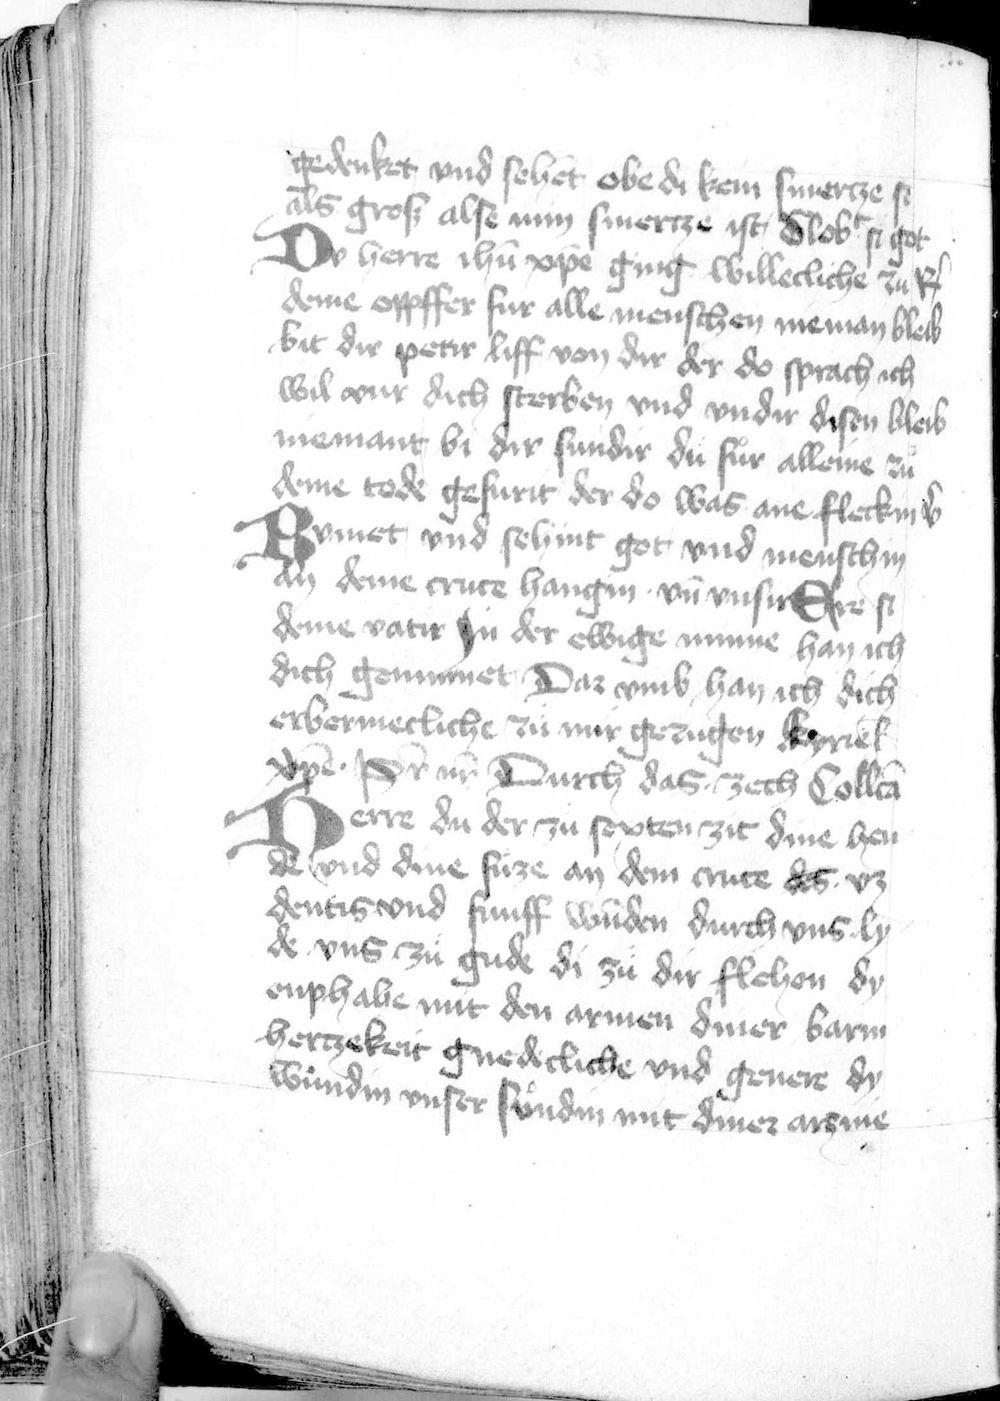 gedenket vnd sehet obe di kein smertze si
als grosz alse min smertze ist Globt si got
Dv herre ihū xp̄e ging willecliche zu
deme opffer fur alle menschen nieman bleib
bit dir petir liff von dir der do sprach ich
wil vur dich sterben vnd vndir disen bleib
niemant bi dir sundir du fůr alleine zů
deme tode gefurit der do was ane fleckin v̄
Kvmet vnd sehint got vnd menschin
an deme cruce hangin vn̄ vnsir Ere si
deme vatir In der ewige minne han ich
dich geminnet Dar vmb han ich dich
erbermecliche zů mir gezugen kyriel
xp̄e Pr̄ nr̄ Durch das zech Collcā
Herre du der zu sexten zit dine hen
de vnd dine fůze an dem cruce des vz
dentis vnd funff wůnden durch vns ly
de vns zů gude di zů dir flehen dy
enphahe mit den armen diner barm
hertzekeit gnedecliche vnd genere dy
wůndin vnser sůndin mit diner arznie